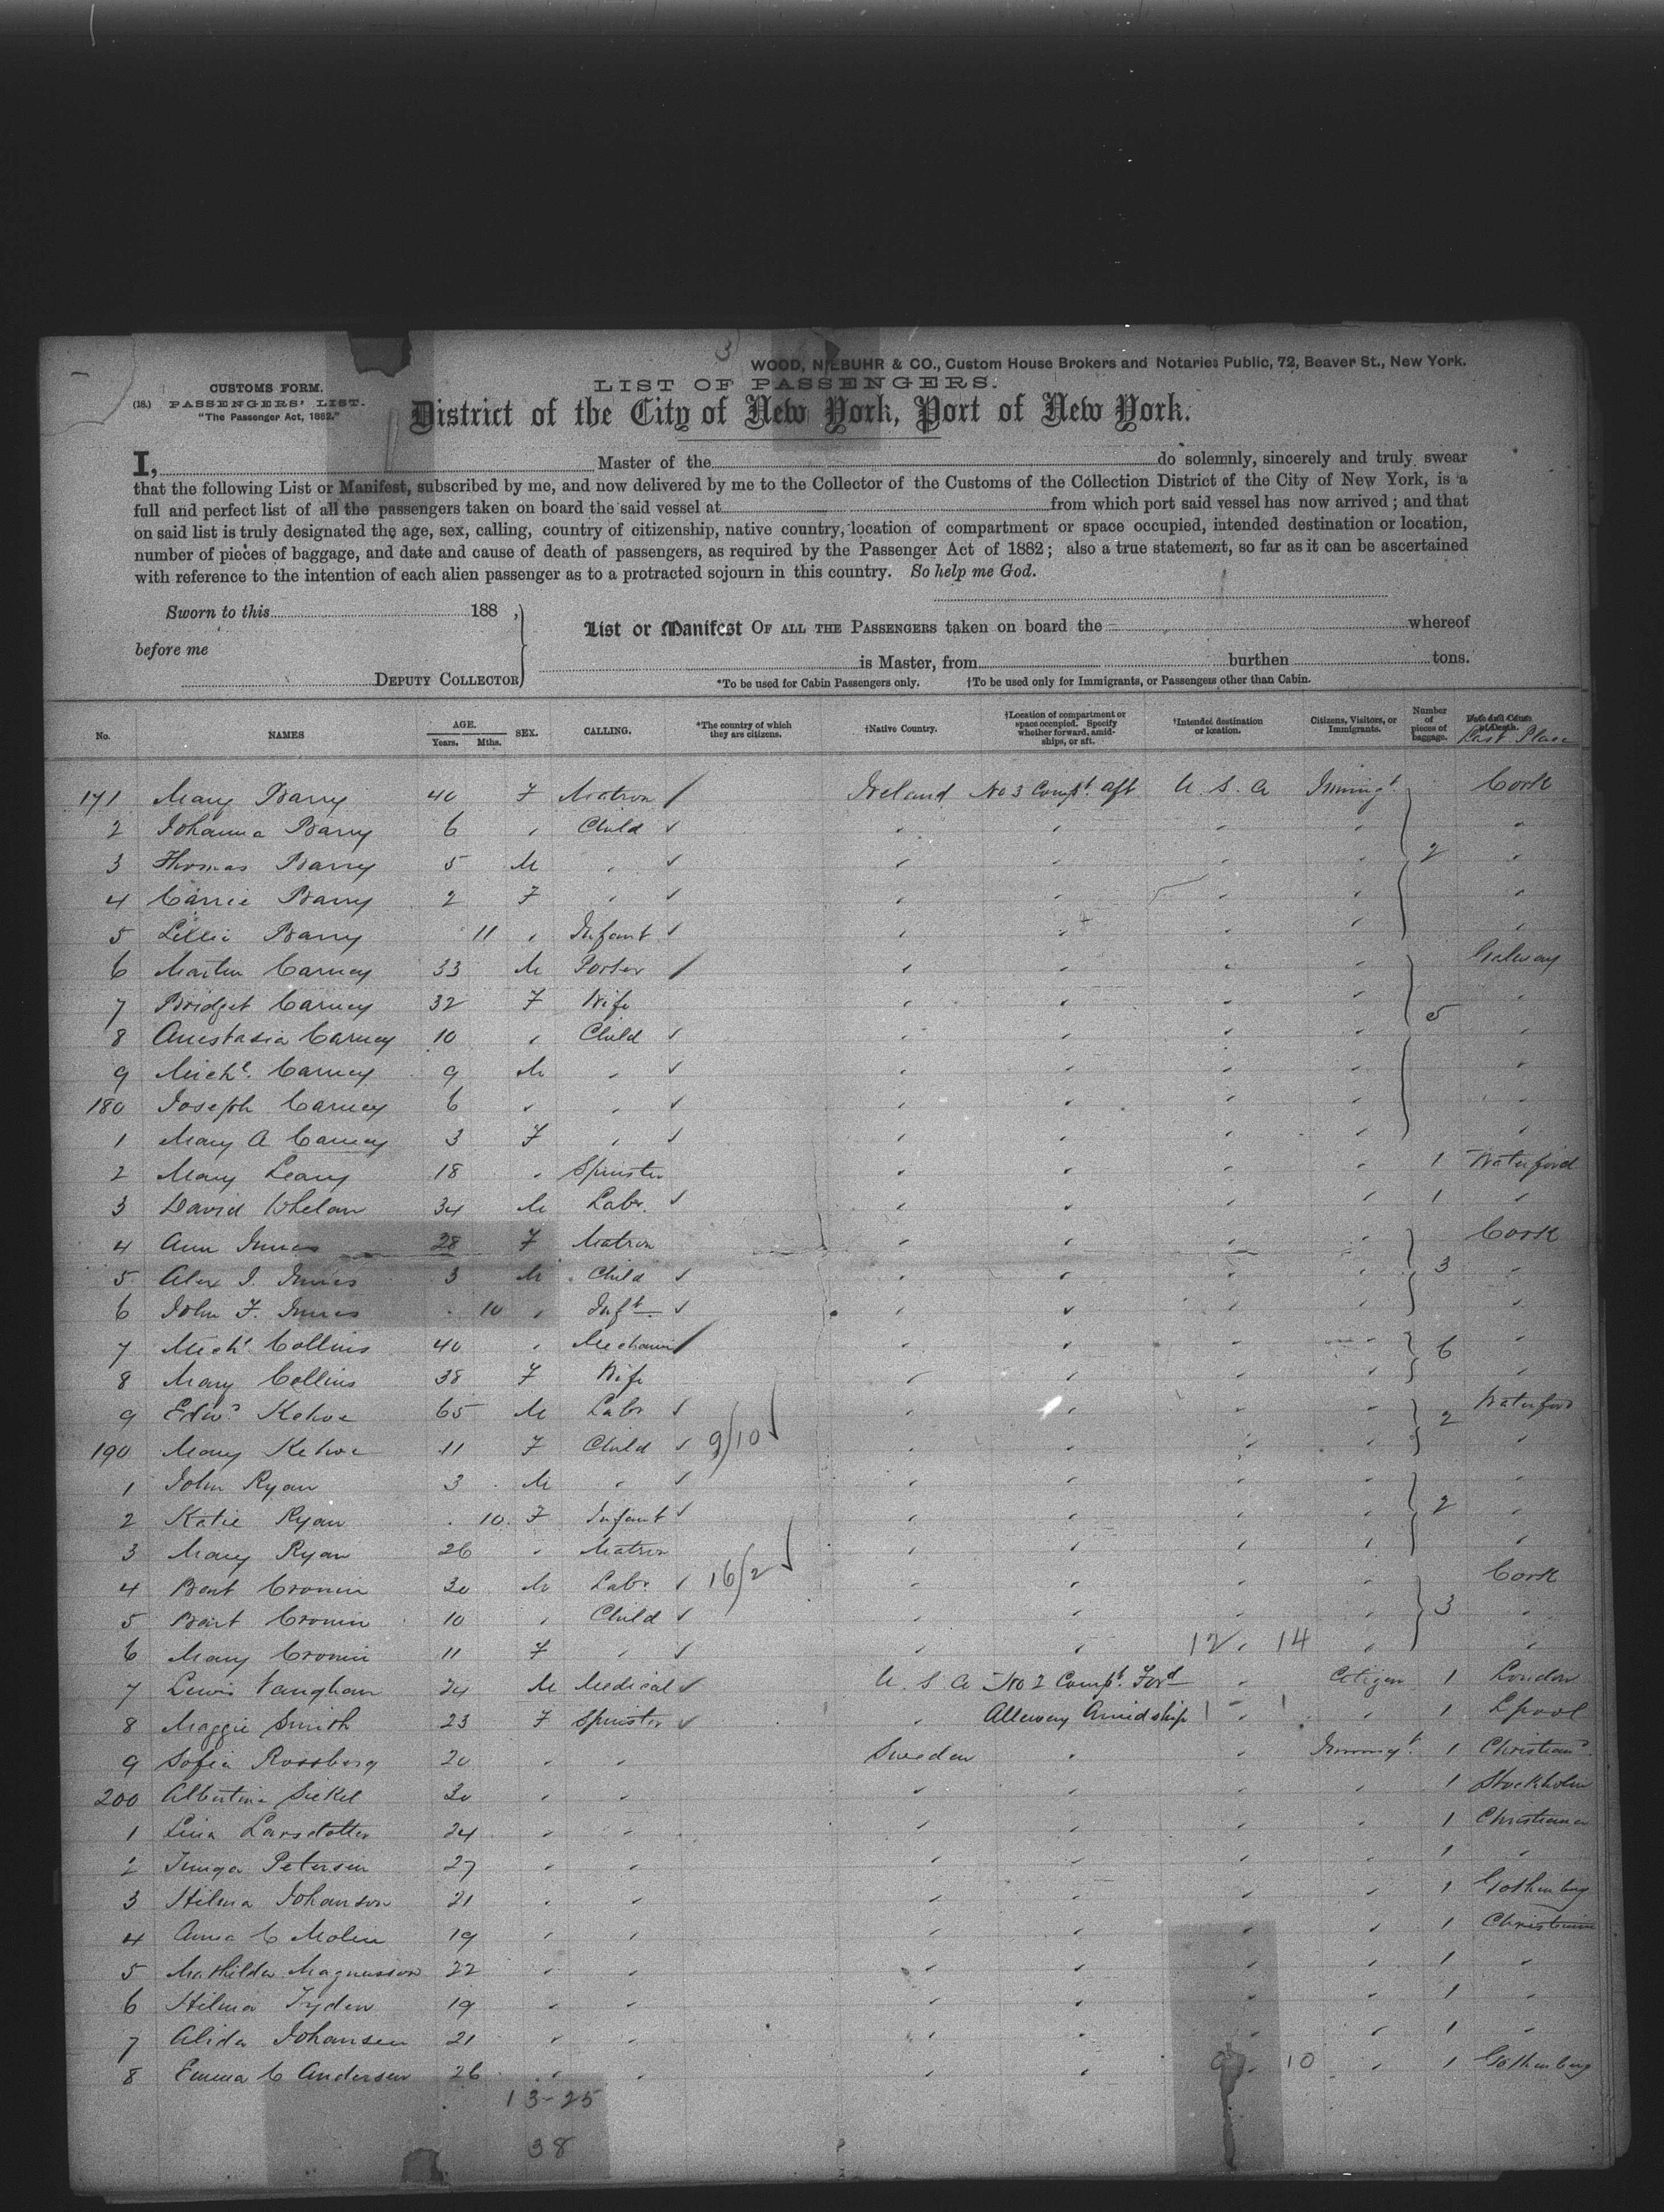 3
WOOD, NIEBUHR & CO., Custom House Brokers and Notaries Public, 72, Beaver St., New York.
CUSTOMS FORM.
LIST OF PASSENGERS.
(18.) PASSENGERS' LIST.
"The Passenger Act, 1882."
District of the City of New York, Port of New York.
I, Master of the do solemnly, sincerely and truly swear
that the following List or Manifest, subscribed by me, and now delivered by me to the Collector of the Customs of the Collection District of the City of New York, is a
full and perfect list of all the passengers taken on board the said vessel at from which port said vessel has now arrived; and that
on said list is truly designated the age, sex, calling, country of citizenship, native country, location of compartment or space occupied, intended destination or location,
number of pieces of baggage, and date and cause of death of passengers, as required by the Passenger Act of 1882; also a true statement, so far as it can be ascertained
with reference to the intention of each alien passenger as to a protracted sojourn in this country. So help me God.
Sworn to this 188 ,
List or Manifest OF ALL THE PASSENGERS taken on board the whereof
before me
is Master, from burthen tons.
DEPUTY COLLECTOR
*To be used for Cabin Passengers only. †To be used only for Immigrants, or Passengers other than Cabin.
No. NAMES AGE. Years. Mths. SEX. CALLING. *The country of which they are citizens. †Native Country. †Location of compartment or space occupied. Specify whether forward, amidships, or aft. †Intended destination or location. Citizens, Visitors, or Immigrants. Number of pieces of baggage. Date and Cause of Death. Last Place
171 Mary Barry 40 F Matron / Ireland No 3 Compt. aft U. S. a Immigt. Cork
2 Johanna Barry 6 " Child ✓ " " " " "
3 Thomas Barry 5 M " ✓ " " " " 2 "
4 Carrie Barry 2 F " ✓ " " " " "
5 Lillie Barry 11 " Infant ✓ " " " " "
6 Martin Carney 33 M Porter / " " " " Galway
7 Bridget Carney 32 F Wife " " " " 5 "
8 Anestasia Carney 10 " Child ✓ " " " " "
9 Michl. Carney 9 M " ✓ " " " " "
180 Joseph Carney 6 " " ✓ " " " " "
1 Mary A Carney 3 F " ✓ " " " " "
2 Mary Leary 18 " Spinster " " " " 1 Waterford
3 David Whelan 34 M Labr. ✓ " " " " 1 "
4 Ann Innes 28 F Matron " " " " Cork
5 Alex J. Innes 3 M Child ✓ " " " " 3 "
6 John F. Innes 10 " Inft ✓ " " " " "
7 Michl Collins 40 " Mechanic / " " " " 6 "
8 Mary Collins 38 F Wife " " " " "
9 Edwd Kehoe 65 M Labr ✓ " " " " 2 Waterford
190 Mary Kehoe 11 F Child ✓ 9/10 " " " " "
1 John Ryan 3 M " ✓ " " " " "
2 Katie Ryan 10 F Infant ✓ " " " " 2 "
3 Mary Ryan 26 " Matron " " " " "
4 Bart Cronin 30 M Labr. ✓ 16/2 " " " " Cork
5 Bart Cronin 10 " Child ✓ " " " " 3 "
6 Mary Cronin 11 F " ✓ " " 12 " 14 " "
7 Lewis Vaughan 24 M Medical ✓ U. S. a No 2 Compt. Ford " Citizen 1 London
8 Maggie Smith 23 F Spinster ✓ " Alleway Amidship " " 1 Lpool
9 Sofia Rossberg 20 " " Sweden " " Immigt. 1 Christiana
200 Albertina Sickel 30 " " " " " " 1 Stockholm
1 Lina Larsdotter 24 " " " " " " 1 Christiana
2 Petersen 27 " " " " " " 1 "
3 Hilma Johanson 21 " " " " " " 1 Gothenburg
4 Anna C Molin 19 " " " " " " 1 Christiana
5 Mathilda Magnusson 22 " " " " " " 1 "
6 Hilma Tyden 19 " " " " " " 1 "
7 Alida Johansen 21 " " " " " " 1 "
8 Emma C Andersen 26 " " " " " 10 " 1 Gothenburg
13-25
38